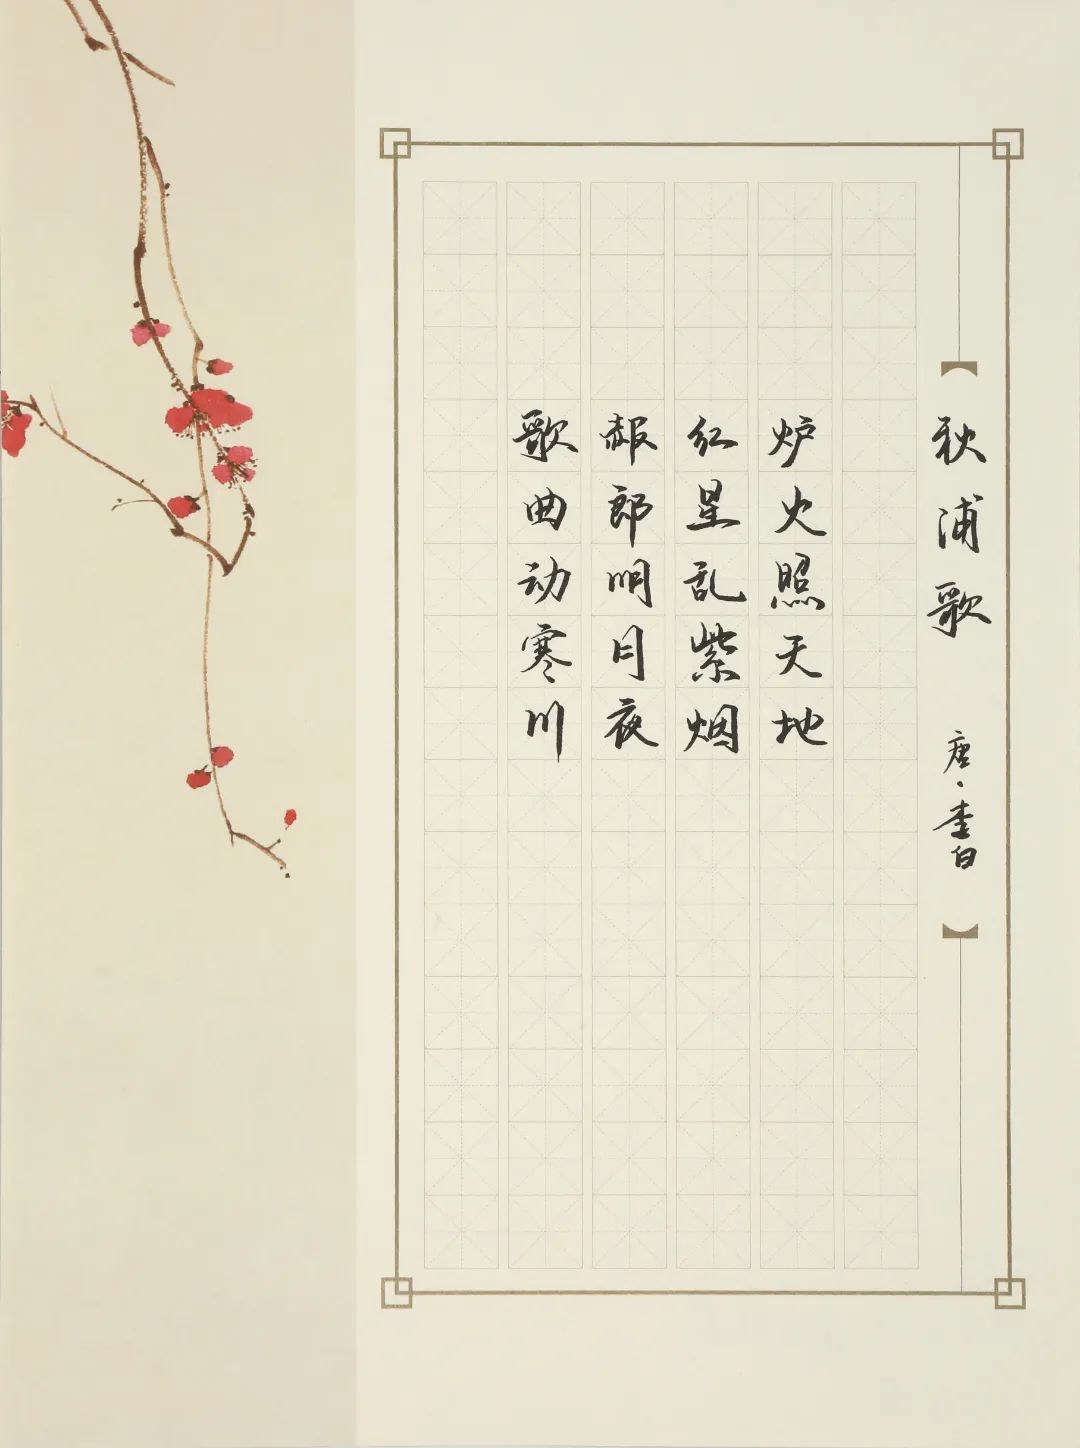 秋浦歌
唐·李白
炉火照天地
红星乱紫烟
赧郎明月夜
歌曲动寒川